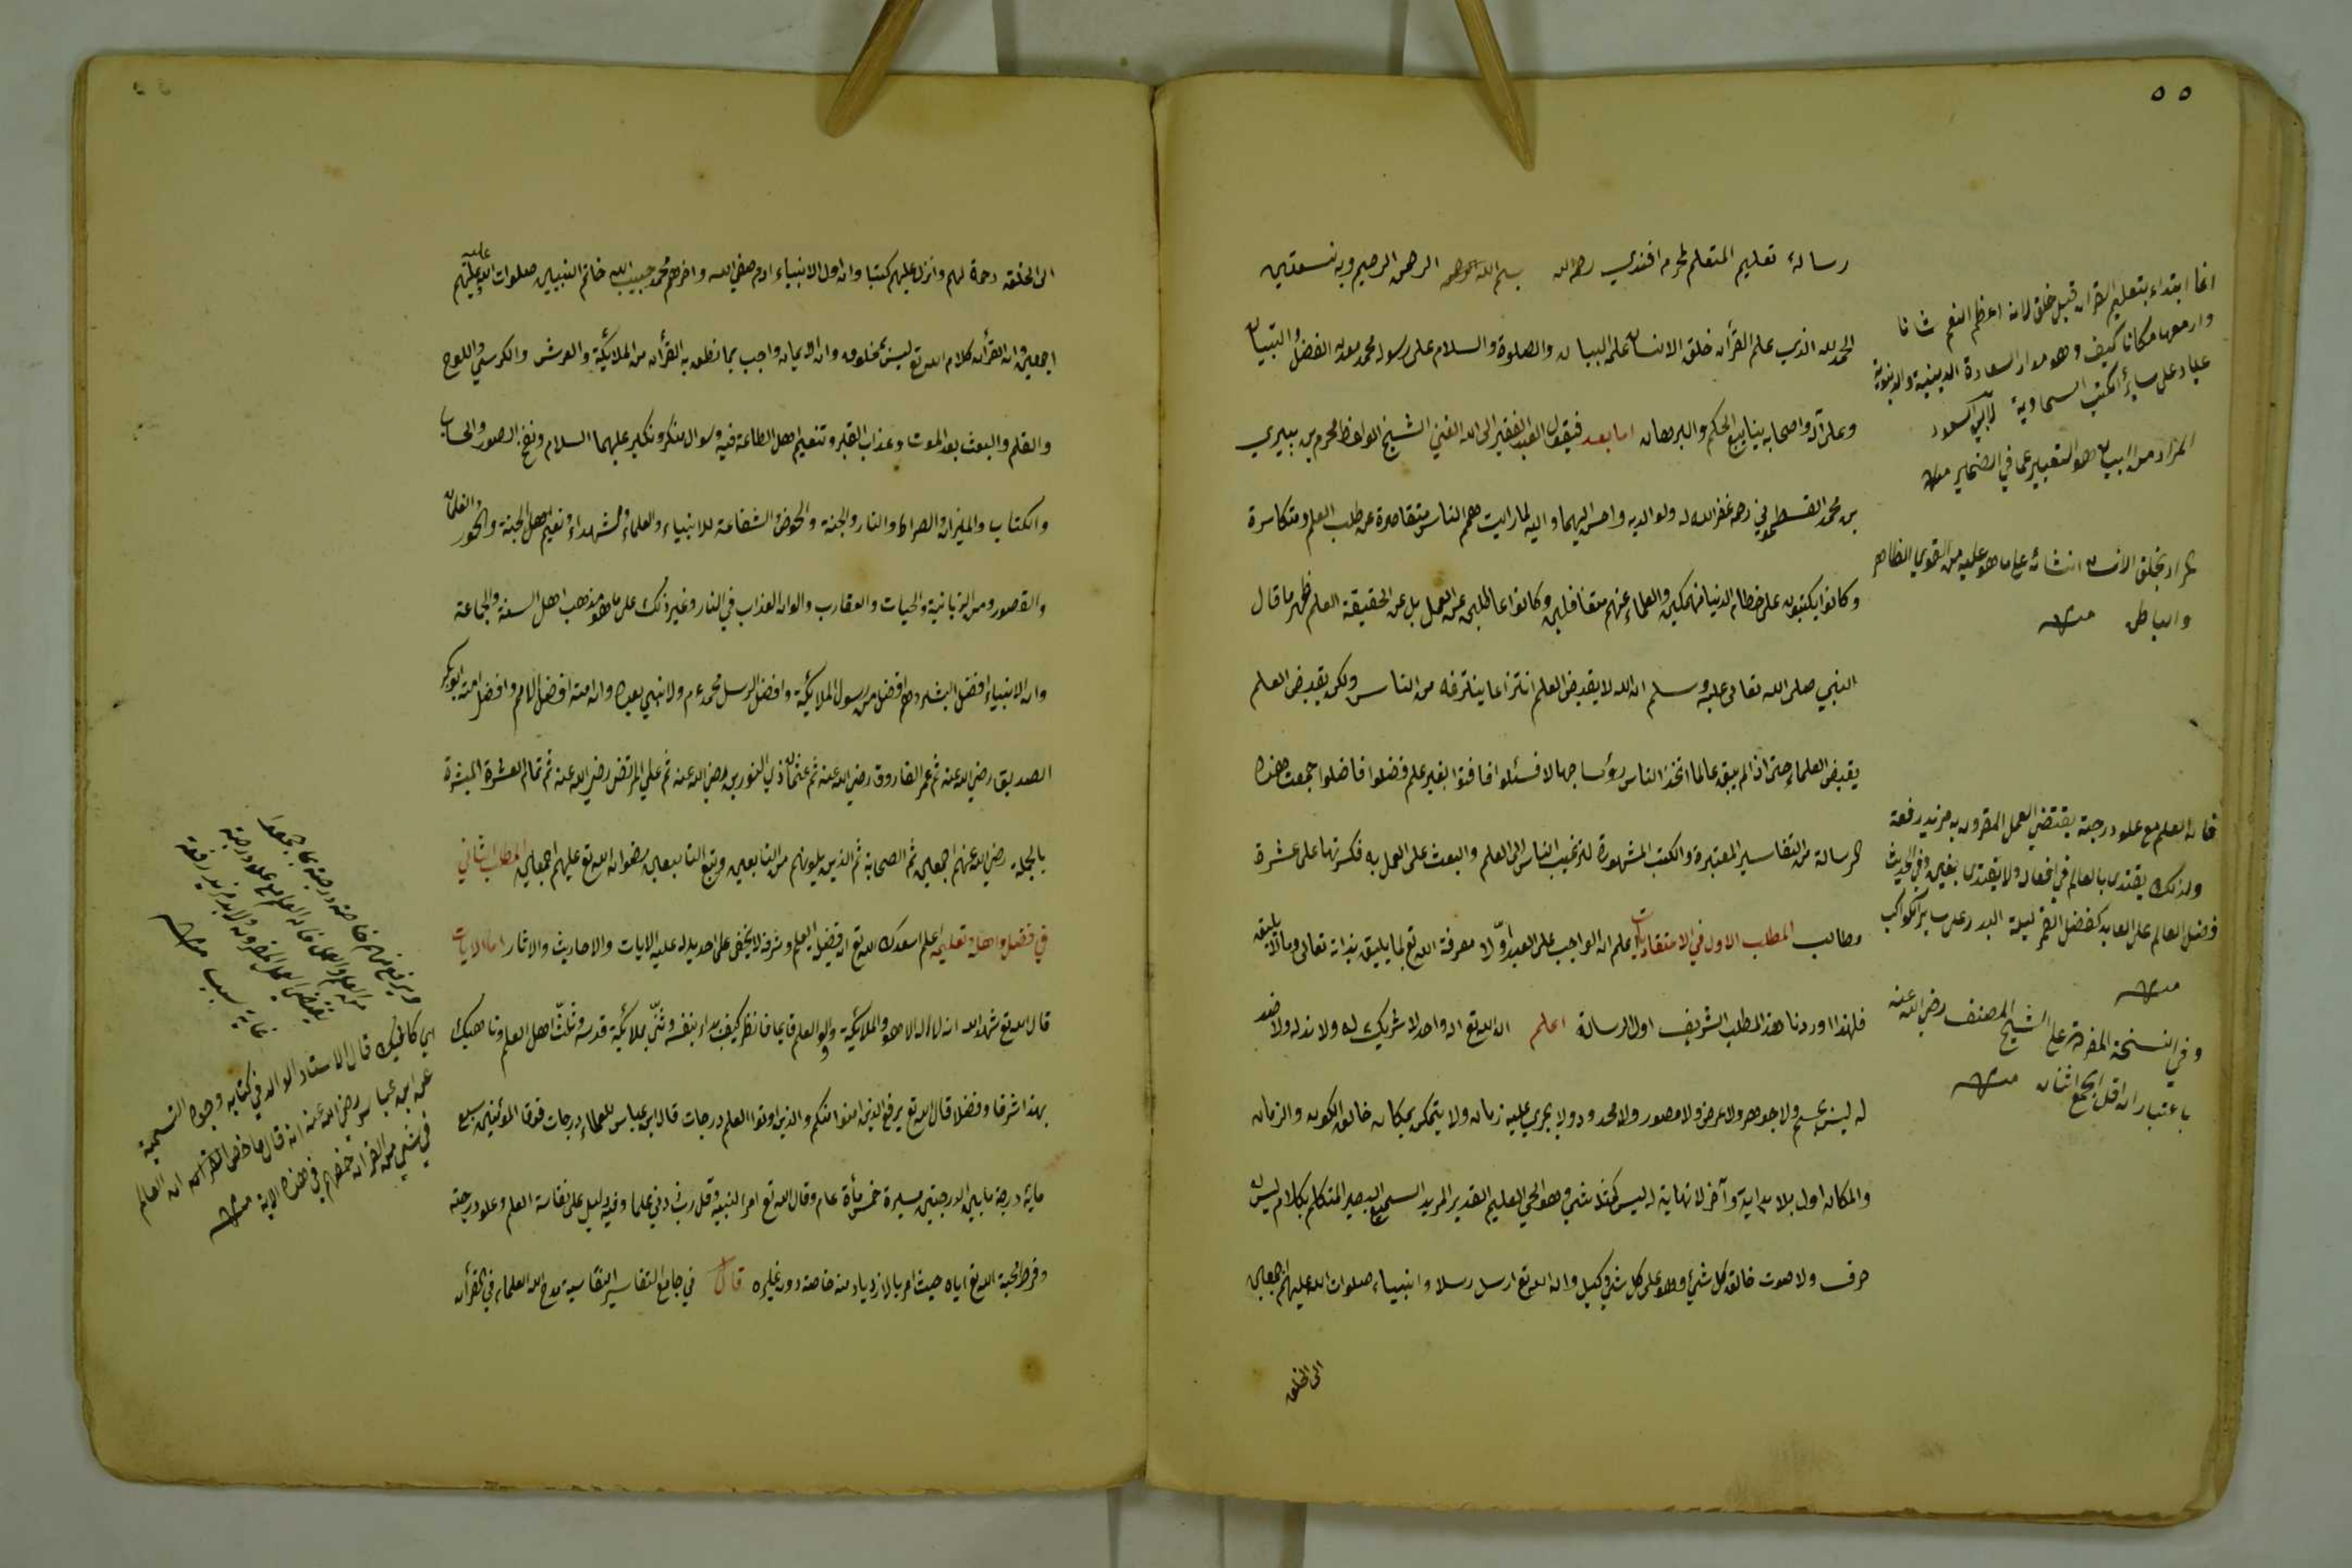 ٥٥
رسالة تعليم المتعلم لمحرم افندي رحمه الله بسم الله الرحمن الرحيم وبه نستعين
الحمد لله الذي علم القرآن خلق الانسان علمه البيان والصلوة والسلام على رسوله محمد معدن الفضل والتبيان
وعلى آله واصحابه ينابيع الحكم والبرهان اما بعد فيقول العبد الفقير الى الله الغني الشيخ الواعظ محرم بن بيري
بن محمد القسطموني رحمه غفر الله له ولوالديه واحسن اليهما واليه لما رايت همم الناس متقاصرة عن طلب العلم ومتكاسرة
وكانوا يكتبون على حطام الدنيا منهمكين والعلماء عنهم متغافلين وكانوا عاطلين عن العمل بل عن الحقيقة العلم فظهر ما قال
النبي صلى الله تعالى عليه وسلم ان الله لا يقبض العلم انتزاعا ينتزعه من الناس ولكن يقبض العلم
يقبض العلماء حتى اذا لم يبق عالما اتخذ الناس رؤسا جهالا فسئلوا فافتوا بغير علم فضلوا فاضلوا جمعت هذه
الرسالة من التفاسير المعتبرة والكتب المشهورة لترغيب الناس الى العلم والبعث على العمل به فكسرتها على عشرة
مطالب المطلب الاول في الاعتقاديات اعلم ان الواجب على العبد اولا معرفة الله تع بما يليق بذاته تعالى وما لا يليق
فلهذا اوردنا هذا المطلب الشريف اول الرسالة اعلم ان الله تع اله واحد لا شريك له ولا ند له ولا ضد
له ليس بجسم ولا جوهر ولا عرض ولا مصور ولا محدود ولا يجري عليه زمان ولا يتمكن بمكان خالق الكون والزمان
والمكان اول بلا بداية وآخر لا نهاية له ليس كمثله شيء وهو الحي العليم القدير المريد السميع البصير المتكلم بكلام ليس
حرف ولا صوت خالق كل شيء وهو على كل شيء وكيل وان الله تع ارسل رسلا وانبياء صلوات الله عليهم اجمعين
الى الخلق
انما ابتداء بتعليم القرآن قبل خلق لانه اعظم النعم شانا
وارفعها مكانا كيف وهو مدار السعادة الدينية والدنيوية
عياد على سائر الكتب السماوية لابي السعود
المراد من البيان هو التعبير عما في الضمير منه
المراد بخلق الانسان انشائه على ما هو عليه من القوي الظاهر
والباطن منه
فان العلم مع علو درجته يقتضي العمل المقرون به مزيد رفعة
ولذلك يقتدى بالعالم في افعاله ولا يقتدى بغيره وفي الحديث
فضل العالم على العابد كفضل القمر ليلة البدر على سائر الكواكب
منه
وفي النسخة المقروة على الشيخ المصنف رضي الله عنه
باعتبار ان اقل الجمع اثنان منه
الى الخلق رحمة لهم وانزل عليهم كتبا وان اول الانبياء ادم صفي الله واخرهم محمد حبيب الله خاتم النبيين صلوات الله عليه عليهم
اجمعين وان القرآن كلام الله تع ليس بمخلوق وان الايمان واجب بما نطق به القرآن من الملائكة والعرش والكرسي واللوح
والقلم والبعث بعد الموت وعذاب القبر وتنعيم اهل الطاعة فيه وسوال منكر ونكير عليهما السلام ونفخ الصور والحساب
والكتاب والميزان والصراط والنار والجنة والحوض والشفاعة للانبياء والعلماء وشهداء ونعيم اهل الجنة والحور والغلمان
والقصور ومن الزبانية والحيات والعقارب والوان العذاب في النار وغير ذلك على ما هو مذهب اهل السنة والجماعة
وان الانبياء افضل البشر وهم افضل من رسول الملائكة وافضل الرسل محمد ءم ولا نبي بعده وان امته افضل الامم وافضل امته ابو بكر
الصديق رضي الله عنه ثم عمر الفاروق رضي الله عنه ثم عثمان ذي النورين رضي الله عنه ثم علي المرتضى رضي الله عنه ثم تمام العشرة المبشرة
بالجنة رضي الله عنهم اجمعين ثم الصحابة ثم الذين يلونهم من التابعين وتبع التابعين رضوان الله تع عليهم اجمعين المطلب الثاني
في فضل واهله وتعليمه اعلم اسعدك الله تع ان فضيلة العلم وشرفه لا يخفى على احد يدل عليه الايات والاحاديث والاثار اما الايات
قال الله تع شهد الله انه لا اله الا هو والملائكة واولو العلم قايما فانظر كيف بداء بنفسه وثنى بملائكة قدسه وثلث اهل العلم وناهيك
بهذا شرفا وفضلا قال الله تع يرفع الذين امنوا منكم والذين اوتوا العلم درجات قال ابن عباس للعلماء درجات فوق المؤمنين سبع
ماية درجة ما بين الدرجتين مسيرة خمس مأة عام وقال الله تع امرا لنبيه وقل رب زدني علما وفيه دليل على نفاسة العلم وعلو درجته
وفرط محبة الله تع اياه حيث امر بالازدياد منه خاصة دون غيره قال في جامع التفاسير النفاسية مدح الله العلماء في القرآن
ويرفع منهم خاصة درجة بما جمعوا
من العلم والعمل فان العلم مع علو درجته
يقتضي العمل المقرون ولا به مزيد رفعة
غاية سبب منه
قال الاستاد الوالد في كتابه وجوه التسمية
عن ابن عباس رضي الله عنه انه قال ما خص القرآن ان العالم
في شيء من القرآن خصهم في هذه الاية منه